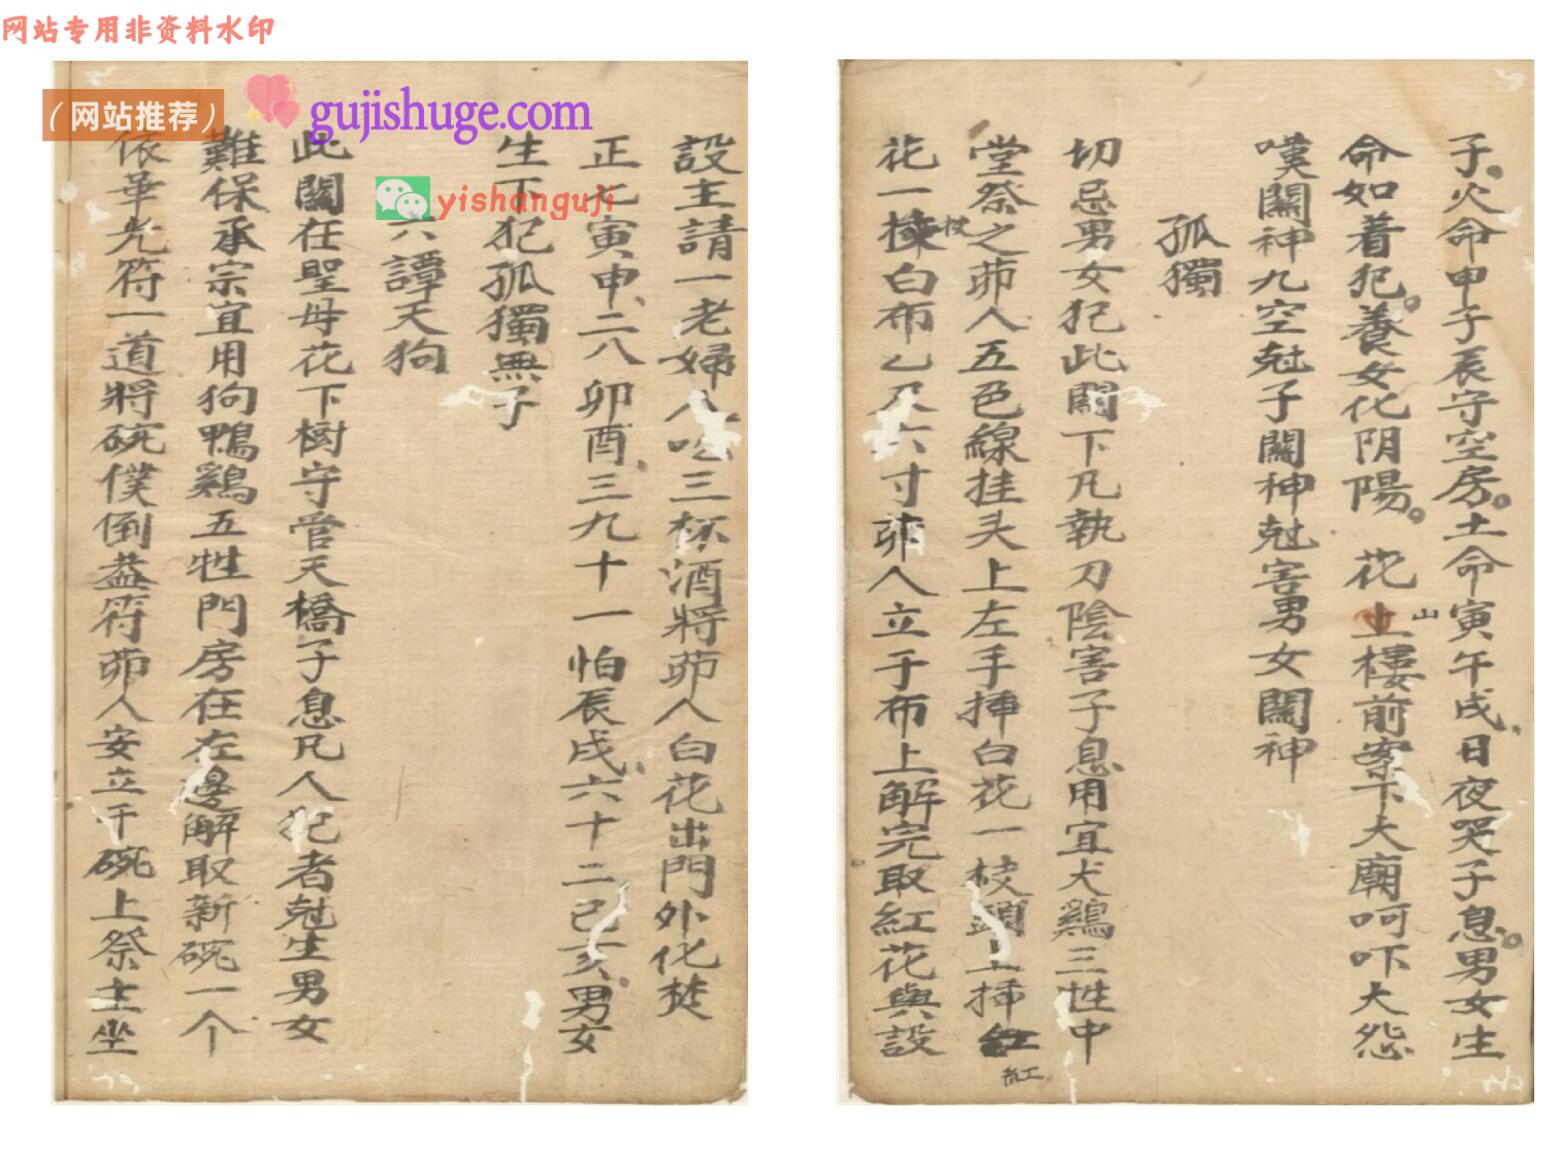 网站专用非资料水印
（网站推荐）
gujishuge.com
yishanguji
子火命申子辰守空房土命寅午戌日夜哭子息男女生
命如着犯養女化阴陽 花山樓前案下大廟呵吓大怨
嘆關神九空尅子關神尅害男女關神
孤獨
切忌男女犯此關下凡執刀陰害子息用宜犬鷄三牲中
堂祭之茆人五色線挂头上左手挿白花一枝頭上挿紅
紅
花一枝白布乙尺六寸茆人立于布上解完取紅花與設
設主請一老婦人吃三杯酒將茆人白花出門外化焚
正七寅申二八卯酉三九十一怕辰戌六十二己亥男女
生下犯孤獨無子
六譚天狗
此關在聖母花下樹守管天橋子息凡人犯者尅生男女
難保承宗宜用狗鴨鷄五牲門房在左邊解取新碗一个
依華光符一道將碗僕倒盖符茆人安立于碗上祭主坐